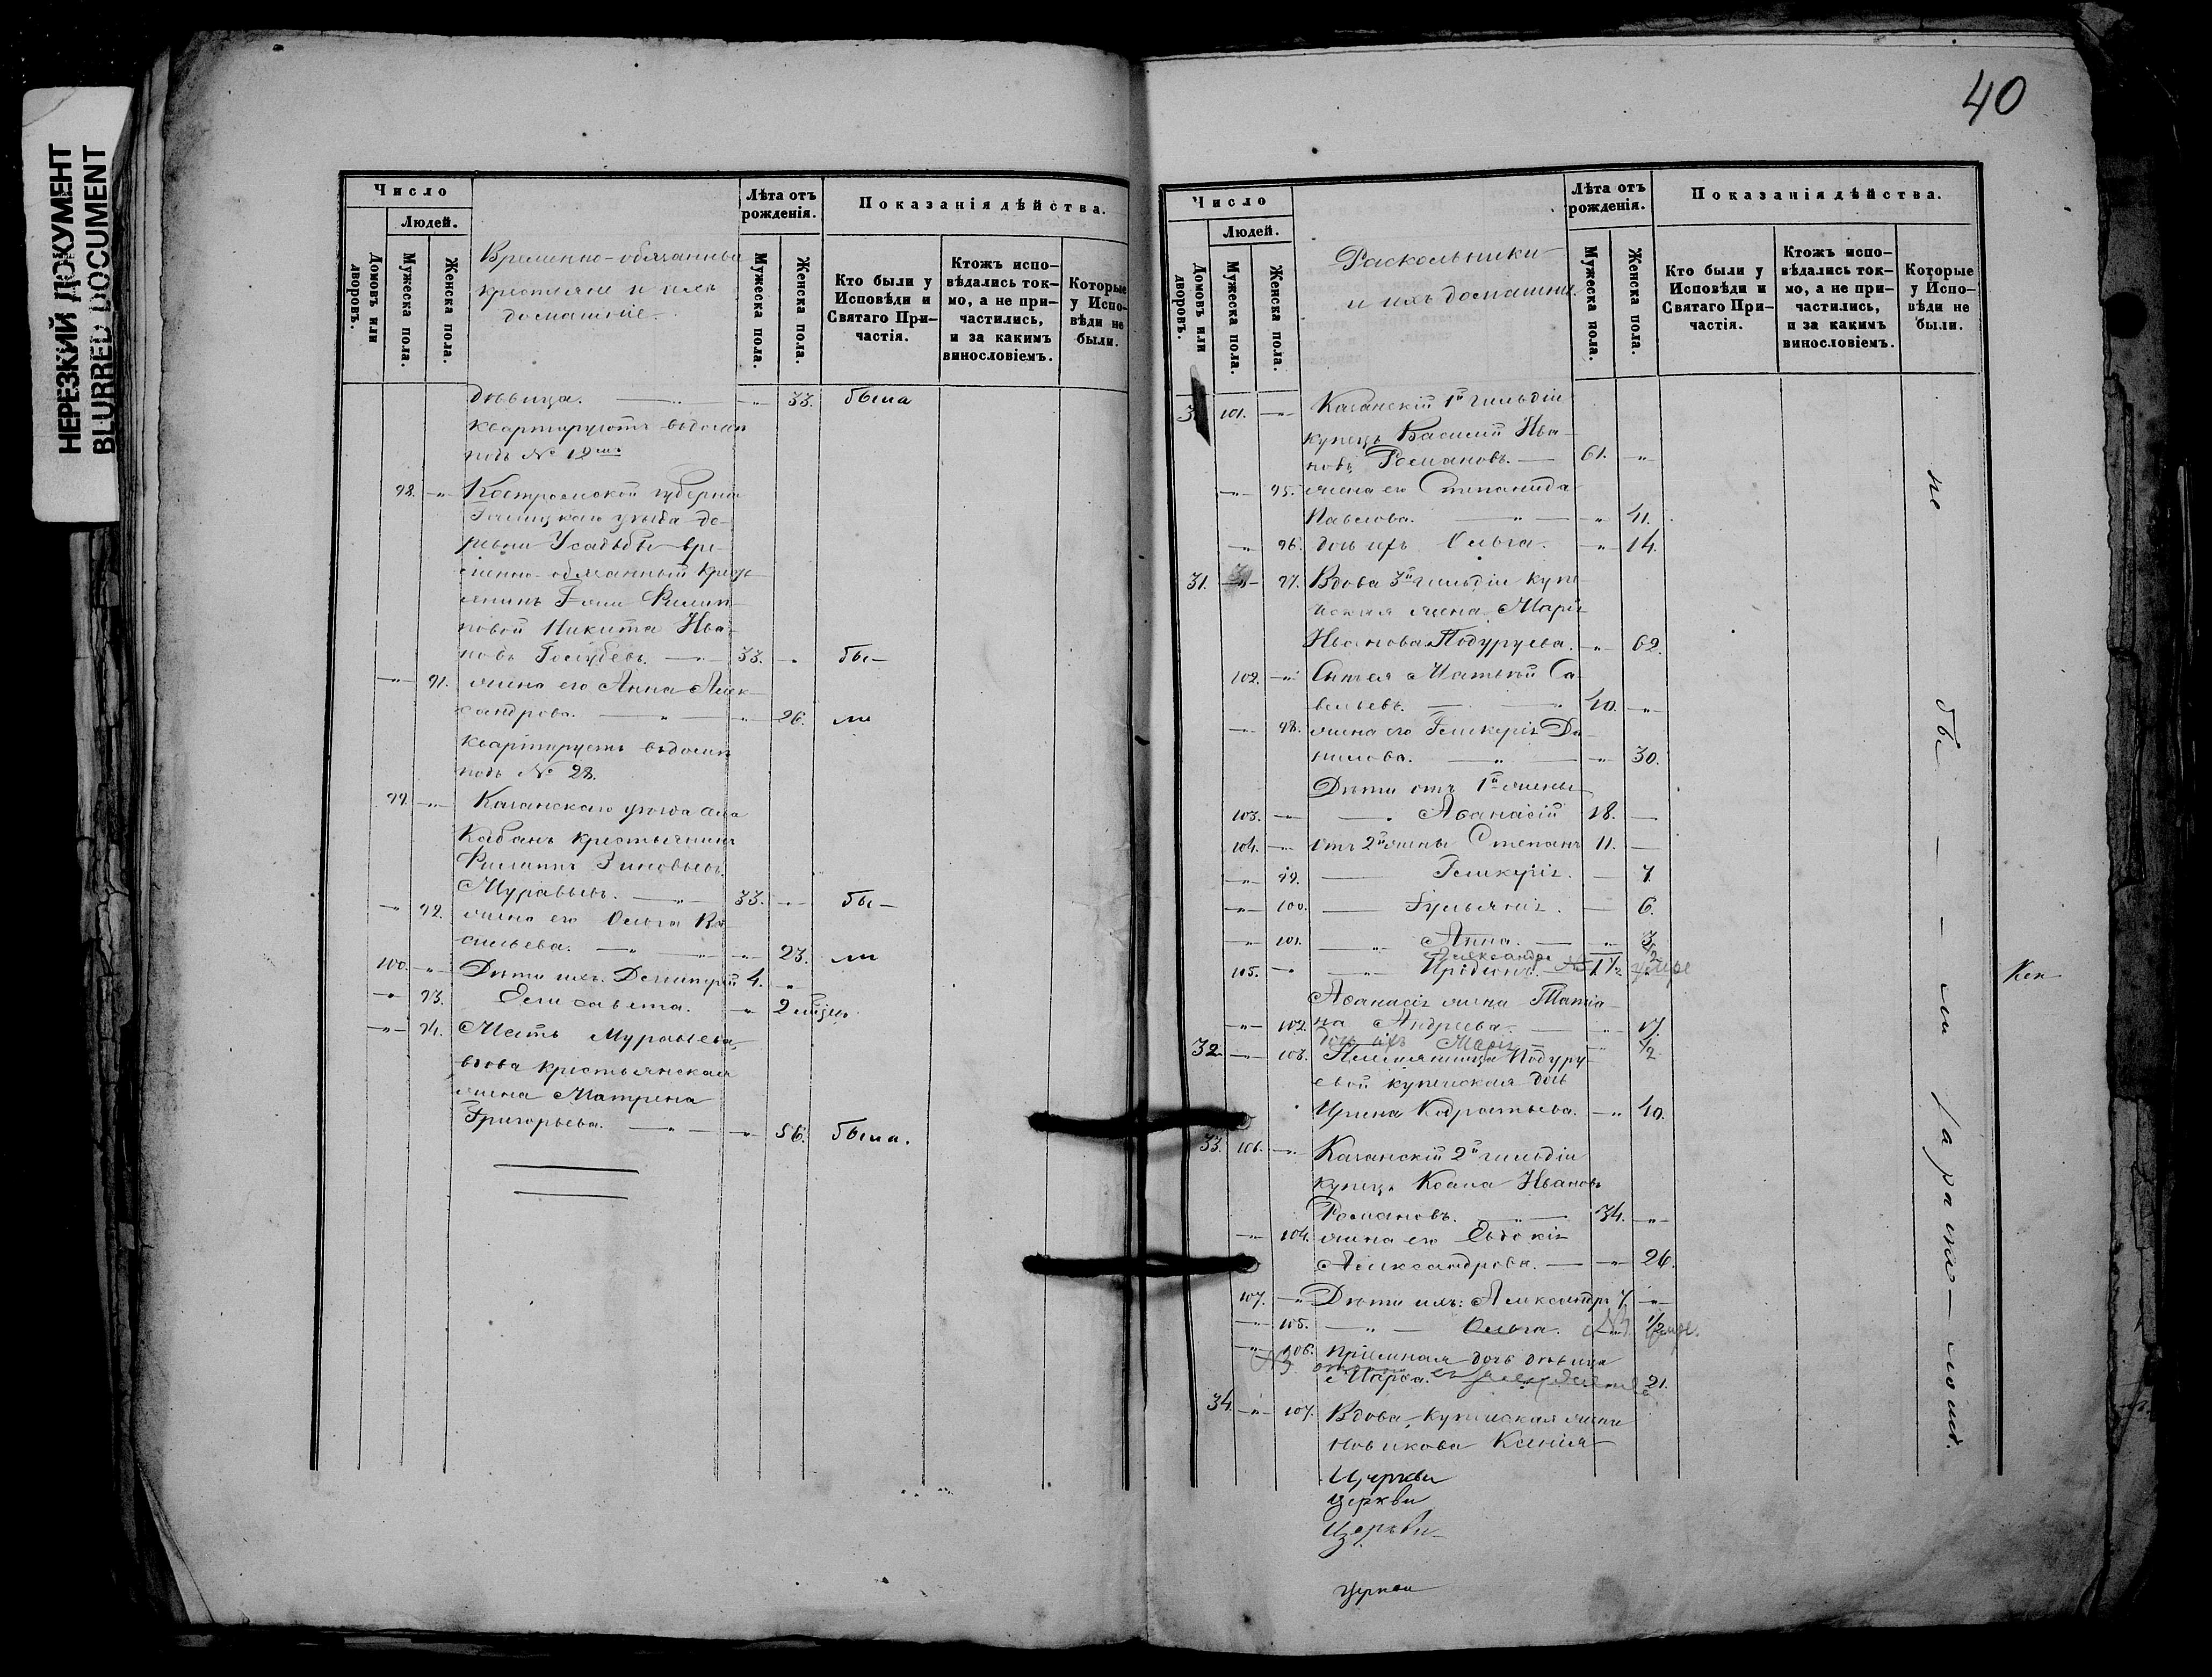 НЕРЕЗКИЙ ДОКУМЕНТ
BLURRED DOCUMENT
Число
Людей.
Домовъ или дворовъ.
Мужеска пола.
Женска пола.
Временно-обязанные
крестьяне и ихъ
домашніе.
Лѣта отъ рожденія.
Мужеска пола.
Женска пола.
Показанія дѣйства.
Кто были у Исповѣди и Святаго Причастія.
Ктожъ исповѣдались токмо, а не причастились, и за какимъ винословіемъ.
Которые у Исповѣди не были.
дѣвица. — " — 33. была
Квартируютъ въ домѣ
подъ № 19
98. — Костромской губерніи
Галицкаго уѣзда де-
ревни Усадьбы вре-
менно-обязанный крест-
янинъ
Никита Ива-
новъ Голубевъ. — 33. " бы-
" 91. жена его Анна Алек-
сандрова. — " 26. ли
Квартируетъ въ домѣ
подъ № 28.
99. — Казанскаго уѣзда села
Кабанъ крестьянинъ
Филиппъ Зиновьевъ
Муравьевъ. — 33. — бы-
" 92. жена его Ольга Ва-
сильева. — " 23. ли
100. — Дѣти ихъ: Димитрій 4. "
" 93. Елисавета. — 2
" 94. Мать Муравьева,
вдова крестьянская
жена Матрена
Григорьева. — " 56. была.
40
Число
Людей.
Домовъ или дворовъ.
Мужеска пола.
Женска пола.
Раскольники
и ихъ домашніе.
Лѣта отъ рожденія.
Мужеска пола.
Женска пола.
Показанія дѣйства.
Кто были у Исповѣди и Святаго Причастія.
Ктожъ исповѣдались токмо, а не причастились, и за какимъ винословіемъ.
Которые у Исповѣди не были.
101. — Казанскій 1й гильдіи
купецъ Василий Ива-
новъ Романовъ. — 61. "
" 95. жена его Степанида
Павлова. — " 41.
" 96. дочь ихъ Ольга. — " 14.
31. " 97. Вдова 3й гильдіи купе-
ческая жена Марія
Иванова Подуруева. — " 62.
102. " Сынъ ея Матвѣй Са-
вельевъ. — 40. "
" 98. жена его Гликерія Да-
нилова. — " 30.
Дѣти отъ 1й жены
103. — Аѳанасій 18. —
104. — отъ 2й жены Степанъ 11. —
" 99. — Гликерія. — 7.
" 100. — Іульянія. — 6.
" 101. — Анна. — " 3
Александра 2
105. " — Иродіонъ. 1½ умре
Аѳанасія жена Татіа-
" 102. на Андреева. — " 17.
дочь ихъ Марія — ½
32 — 103. Племянница Подуру-
евой купеческая дочь
Ирина Кодратьева. — " 40.
33. 106. " Казанскій 2й гильдіи
купецъ Козма Ивановъ
Романовъ. — 34. "
" 104. жена его Евдокія
Александрова. — " 26.
107. " Дѣти ихъ: Александръ 7. "
" 105. — " — Ольга. ½ умре.
" 106. Приемная дочь дѣвица
Марѳа. 21.
34. " 107. Вдова, купеческая жена
Новикова Ксенія
не бы — ли за раско — ломъ.
Церкви
церкви
Церкви
церкви